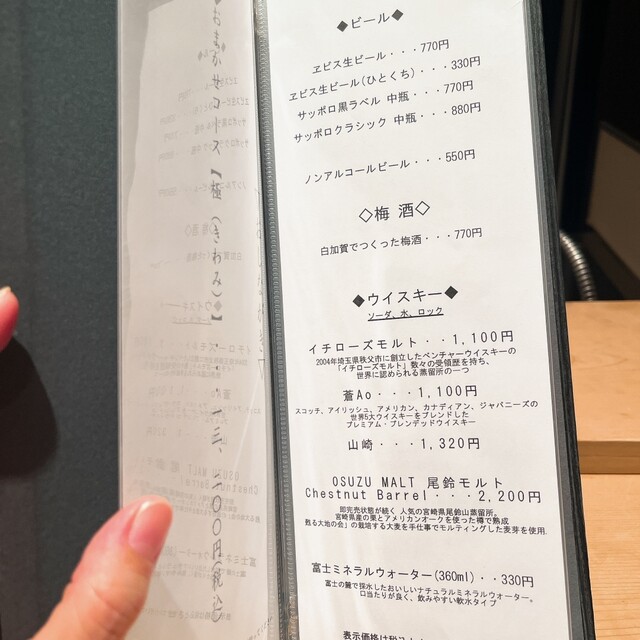 ◆おまかせコース【極(きわみ)】
一三、二〇〇円(税込)
◆ビール◆
ヱビス生ビール・・・770円
ヱビス生ビール(ひとくち)・・・330円
サッポロ黒ラベル 中瓶・・・770円
サッポロクラシック 中瓶・・・880円
ノンアルコールビール・・・550円
◇梅 酒◇
白加賀でつくった梅酒・・・770円
◆ウイスキー◆
ソーダ、水、ロック
イチローズモルト・・1,100円
2004年埼玉県秩父市に創立したベンチャーウイスキーの
「イチローズモルト」数々の受領歴を持ち、
世界に認められる蒸留所の一つ
蒼Ao・・・1,100円
スコッチ、アイリッシュ、アメリカン、カナディアン、ジャパニーズの
世界5大ウイスキーをブレンドした
プレミアム・ブレンデッドウイスキー
山崎・・・1,320円
OSUZU MALT 尾鈴モルト
Chestnut Barrel・・・2,200円
即完売状態が続く 人気の宮崎県尾鈴山蒸留所。
宮崎県産の栗とアメリカンオークを使った樽で熟成
甦る大地の会」の栽培する大麦を手仕事でモルティングした麦芽を使用.
富士ミネラルウォーター(360ml)・・330円
富士の麓で採水したおいしいナチュラルミネラルウォーター。
口当たりが良く、飲みやすい軟水タイプ
表示価格は税